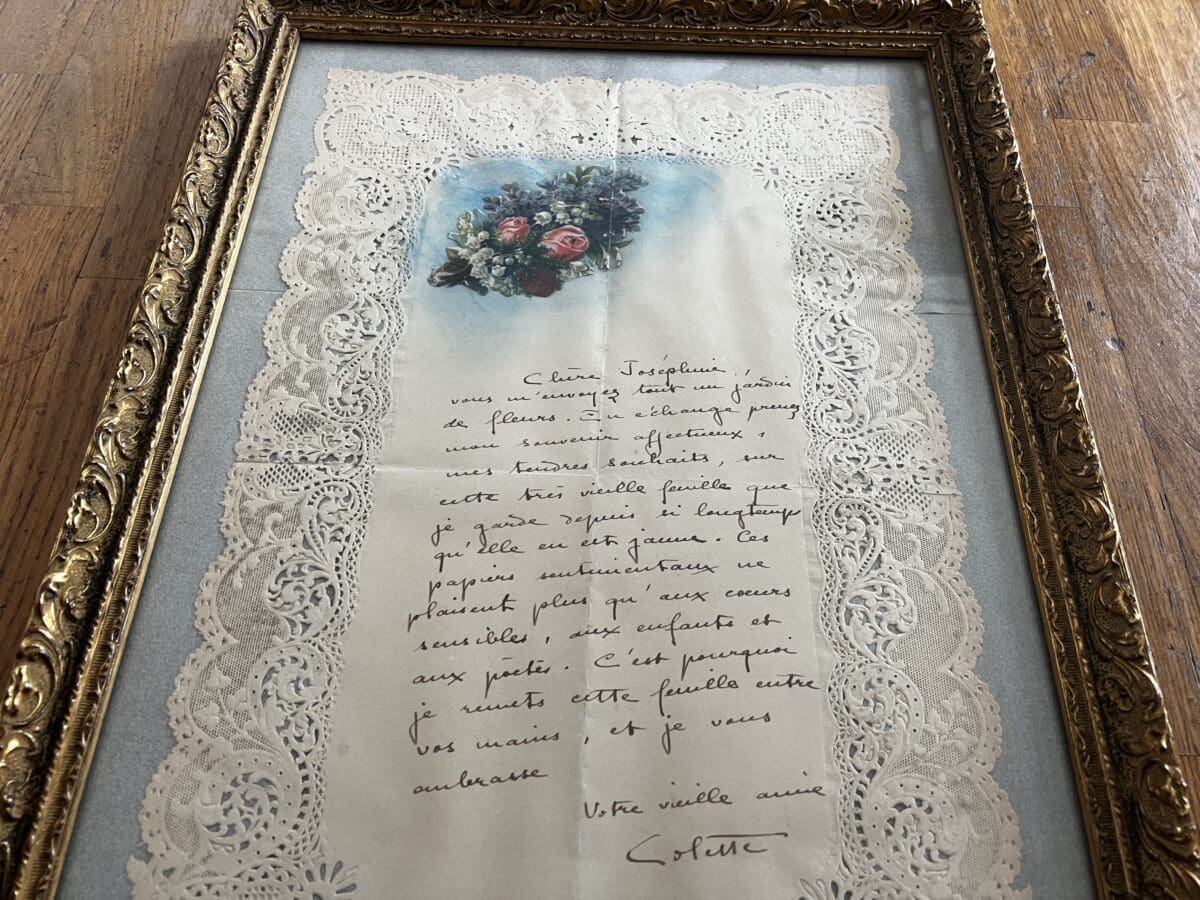 Chère Joséphine,
vous m'envoyez tout un jardin
de fleurs. En échange prenez
mon souvenir affectueux,
mes tendres souhaits, sur
cette très vieille feuille que
je garde depuis si longtemps
qu'elle en est jaune. Ces
papiers sentimentaux ne
plaisent plus qu'aux cœurs
sensibles, aux enfants et
aux poètes. C'est pourquoi
je remets cette feuille entre
vos mains, et je vous
embrasse
Votre vieille amie
Colette